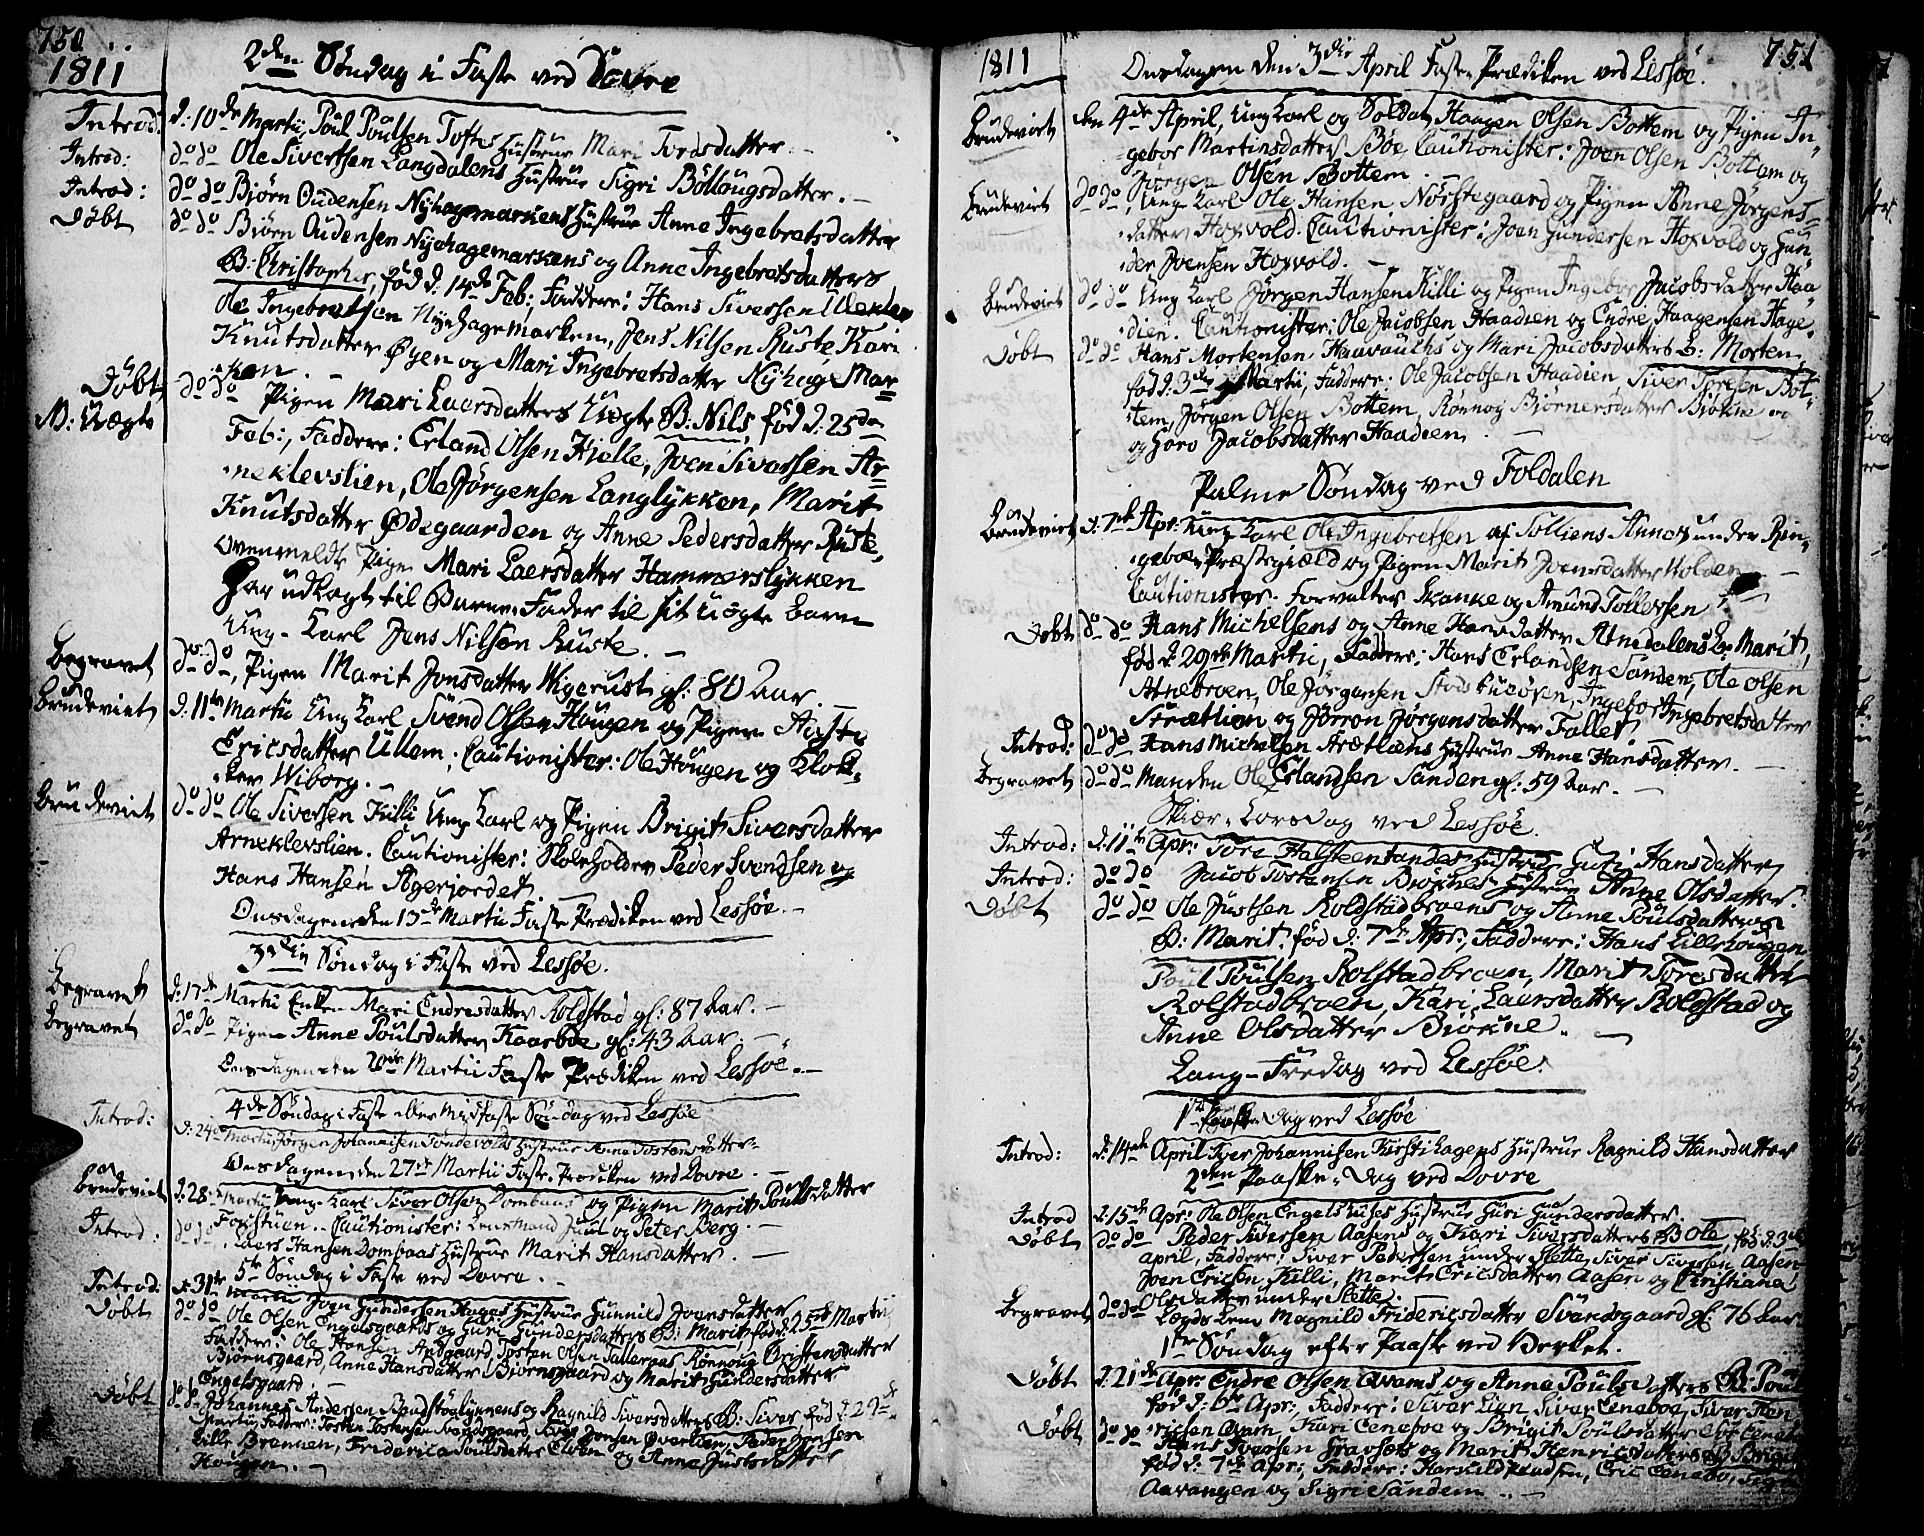 750
1811
2den Söndag i Faste ved Dovre
Introd: d: 10de Martii, Poul Poulsen Toftes Hustrue Mari Tordsdatter.
Introd: do do Ole Sivertsen Langdalens Hustrue Sigri Böllougsdatter.
Introd: do do Björn Oudensen Nyhagemarkens Hustrue Anne Ingebretsdatter
Döbt do do Biörn Oudensen Nyehagemarkens og Anne Ingebretsdatters
B: Christopher, föd d. 14de Feb; Faddere: Hans Siverssen
Ole Ingebretsen Nyehagemarken, Jens Nilsen Ruste Kari
Knutsdatter Øyen og Mari Ingebretsdatter Nyhage Mar=
ken.
Döbt do do Pigen Mari Laersdatters Uægte B: Nils, föd d. 25de
N: Uægte Feb:, Faddere: Erland Olsen Kjelle, Joen Siverssen Ar=
neklevslien, Ole Jörgensen Langlykken, Marit
Knutsdatter Ødegaarden og Anne Pedersdatter Ruste,
ovenmeldte Pige Mari Laersdatter Hammerslykken
har udlagt til Barne-Fader til sit uægte barn
Ung-Karl Jens Nilsen Ruste.
Begravet do do, Pigen Marit Jonsdatter Wigerust gl: 80 aar.
Brudeviet d. 11te Martii Ung Karl Svend Olsen Hougen og Pigen
Ericsdatter Ullem. Cautionister: Ole Hougen og Klok=
ker Wiborg.
Brudeviet do do Ole Siversen Killi Ung Karl og Pigen Brigit Siversdatter
Arneklevslien. Cautionister: Skoleholder Peder Svendsen og
Hans Hansen Agerjordet.
Onsdagen den 13de Martii Faste Prædiken ved Lessöe.
3die Söndag i Faste ved Lessöe.
Begravet d: 17de Martii Enken Mari Endresdatter Roldstad gl: 87 Aar.
Begravet do do Pigen Anne Poulsdatter Kaarboe gl: 43 Aar.
Onsdagen den 20de Martii Faste Prædiken ved Lessöe.
4de Söndag i Faste eller Midfaste Söndag ved Lessöe
Introd: d: 24de Martii Jörgen Johannisen Söndevolds Hustrue Anne Tostensdatter
Onsdagen den 27de Martii Faste Prædiken ved Dovre.
Brudeviet d: 28de Martii Ung Karl Siver Olsen Dombaas og Pigen Marit Poulsdatter
Fogstuen. Cautionister: Lensmand Juul og Peter Berg.
Introd: do do Laers Hansen Dombaas Hustrue Marit Hansdatter.
5te Söndag i Faste ved Dovre.
Introd d. 31te Martii Joen Gundersen Hages Hustrue Gunnild Joensdatter
Döbt do do Ole Olsen Engelsgaards og Guri Gundersdatters B: Marit, föd d. 25de Martii
Faddere: Ole Hansen Andgaard, Tosten Olsen Talleraas, Rönnoug Christensdatter
Biörnsgaard, Anne Hansdatter Biörnsgaard og Marit Gundersdatter
Engelsgaard.
Döbt do do Johannes Andersen og Ragnild Siversdatters B: Siver föd d. 29de
Martii, Faddere: Tosten Tostensen Svandsgaard, Siver Jensen Øverlien, Peder Jensen
Lille Brennen, Friderica Poulsdatter og Anne Justsdatter
Hougen.
1811
751
Onsdagen den 3die April Faste-Prædiken ved Lessöe.
Brudeviet den 4de April, Ung Karl og Soldat Haagen Olsen Bottem og Pigen In=
gebor Martinsdatter Böe, Cautionister: Joen Olsen Bottem og
Jörgen Olsen Bottem.
Brudeviet do do, Ung Karl Ole Hansen Nörstegaard og Pigen Anne Jörgens=
datter Hoxvold. Cautionister: Joen Gundersen Hoxvold og Gun=
der Joensen Hoxvold.
Brudeviet do do Ung Karl Jörgen Hansen Killi og Pigen Ingebor Jacobsdatter Haa=
dien. Cautionister: Ole Jacobsen Haadien og Endre Haagensen Hage.
Döbt do do Hans Mortensen Haavauchs og Mari Jacobsdatters B: Morten,
föd d. 3die Martii, Faddere: Ole Jacobsen Haadien, Siver Toresen Bot=
tem, Jörgen Olsen Bottem, Rönnog Biörnersdatter Biökne og
og Goro Jacobsdatter Haadien.
Palme Söndag ved Foldalen
Brudeviet d. 7de Apr: Ung Karl Ole Ingebretsen af Solliens Annex under Rin=
geboe Præstegiæld og Pigen Marit Joensdatter Holden
Cautionister. Forvalter Skanke og Amund Tollefsen
Döbt do do Hans Michelsens og Anne Hansdatter Atnedalens B: Marit,
föd d. 29de Martii, Faddere: Hans Erlandsen Sanden, Ole Olsen
Atnebroen, Ole Jörgensen, Ingebor Ingebretsdatter
Strætlien og Jörron Jörgensdatter Fallet
Introd: do do Hans Michelsen Strætliens Hustrue Anne Hansdatter.
Begravet do do Manden Ole Erlandsen Sanden gl: 59 Aar.
Skiær-Torsdag ved Lessöe.
Introd: d. 11te Apr: Tore Halsteentandes Hustrue Guri Hansdatter
Introd: do do Jacob Tostensen Biöknes Hustrue Anne Olsdatter.
Döbt do do Ole Justsen Roldstadbroens og Anne Poulsdatters
B: Marit, föd d. 7de Apr:, Faddere: Hans Lillehougen
Poul Poulsen Rolstadbroen, Marit Toresdatter
Rolstadbroen, Kari Laersdatter Roldstad og
Anne Olsdatter Biökne.
Lang-Fredag ved Lessöe.
1te Paaske Dag ved Lessöe
Introd: d. 14de April Iver Johannisen Kirstihagens Hustrue Ragnild Hansdatter
2den Paaske-Dag ved Dovre
Introd d. 15de Apr: Ole Olsen Engelshuses Hustrue Guri Gundersdatter.
Döbt do do Peder Siversen Aasens og Kari Siversdatters B: Ole, föd d. 3die
April, Faddere: Siver Pedersen under Slette, Siver Siversen Aasen
Joen Ericsen Killi, Marit Ericsdatter Aasen og Christiana
Olsdatter under Slette.
Begravet do do Lægds Lem Magnild Fridericsdatter Svandsgaard gl: 76 Aar
1te Söndag efter Paaske ved Verket.
Döbt d. 21de Apr: Endre Olsen Qvams og Anne Poulsdatters B: Poul
föd d. 6te Apr:, Faddere: Siver Lien, Siver Eeneboe, Siver Hen=
richsen Qvam, Kari Eeneboe og Brigit Poulsdatter
Döbt do do Hans Iversen Gravsets og Marit Henricsdatters B: Brigit
föd d. 7de Apr:, Faddere: Herskild Knudsen, Eric Eenebo,
Aavangen og Sigri Sandem.